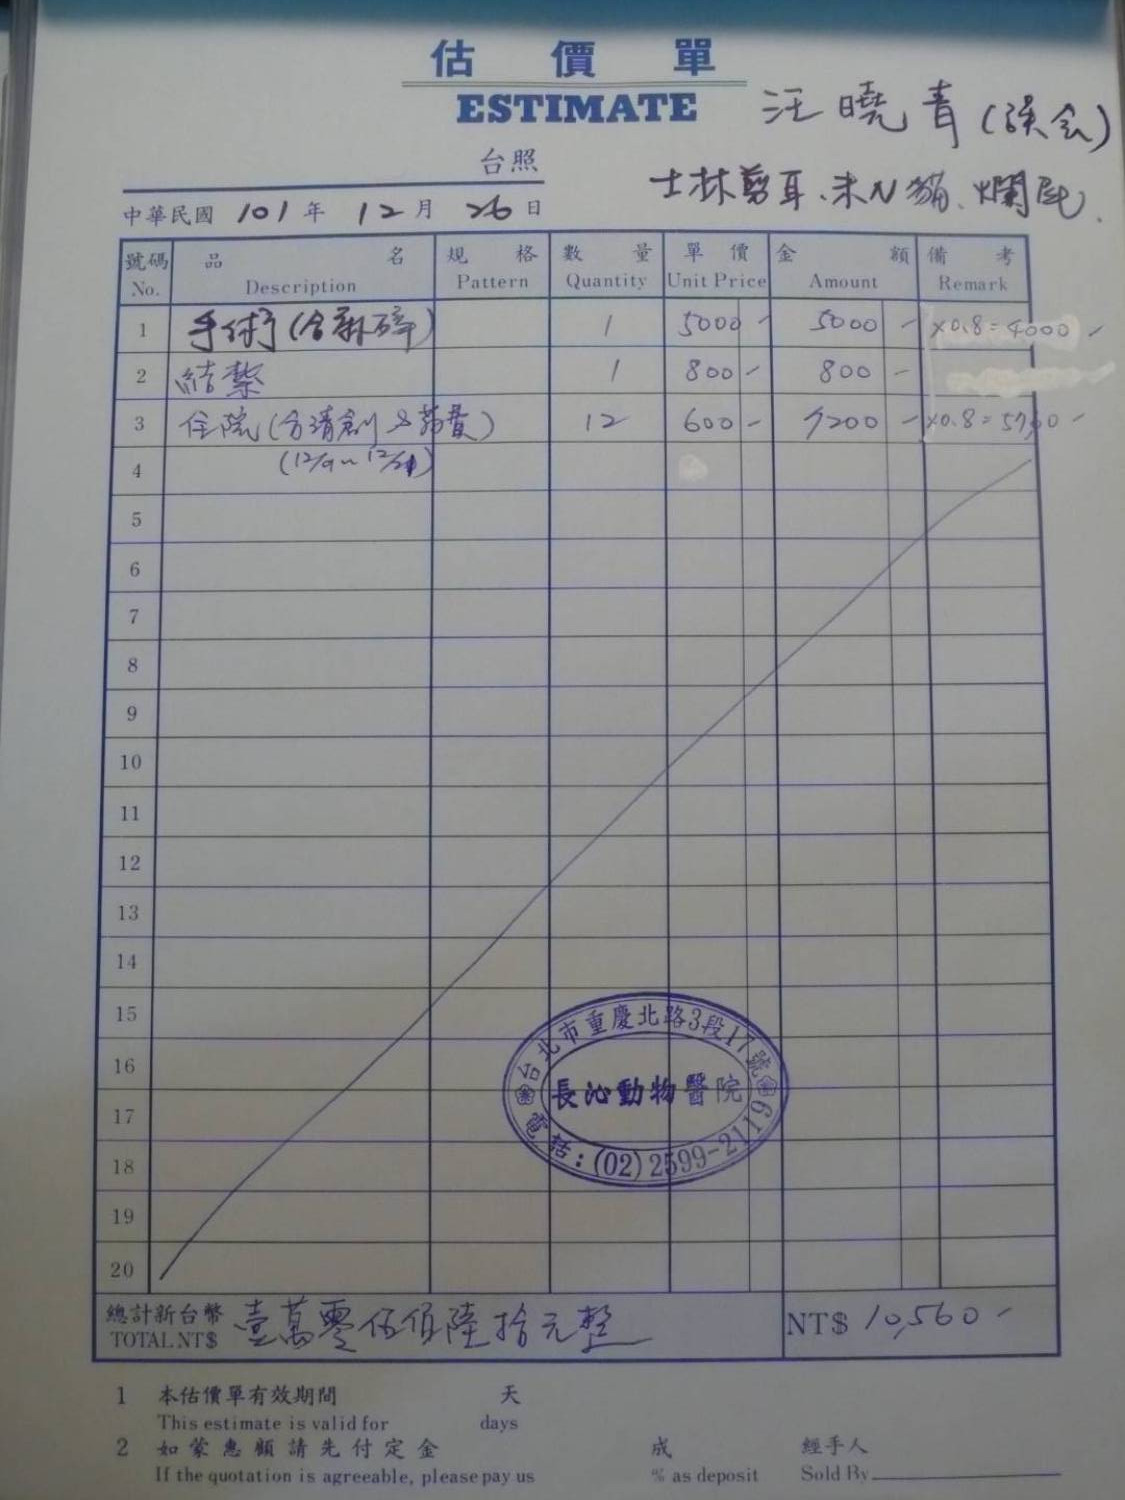 估價單
ESTIMATE
汪曉青(誤会)
台照
士林剪耳、未N貓、爛尾.
中華民國 101 年 12 月 26 日
號碼 品名 規格 數量 單價 金額 備考
No. Description Pattern Quantity Unit Price Amount Remark
1 手術(含麻碎) 1 5000 - 5000 - x0.8=4000 -
2 結紮 1 800 - 800 -
3 住院(含清創 & 葯費) 12 600 - 7200 - x0.8=5760 -
4
5
6
7
8
9
10
11
12
13
14
15
16
17
18
19
20
台北市重慶北路3段17號
長沁動物醫院
電話:(02)2599-2119
總計新台幣 壹萬零伍佰陸拾元整
TOTAL NT$ NT$ 10,560 -
1 本估價單有效期間 天
This estimate is valid for days
2 如蒙惠顧請先付定金 成 經手人
If the quotation is agreeable, please pay us % as deposit Sold By